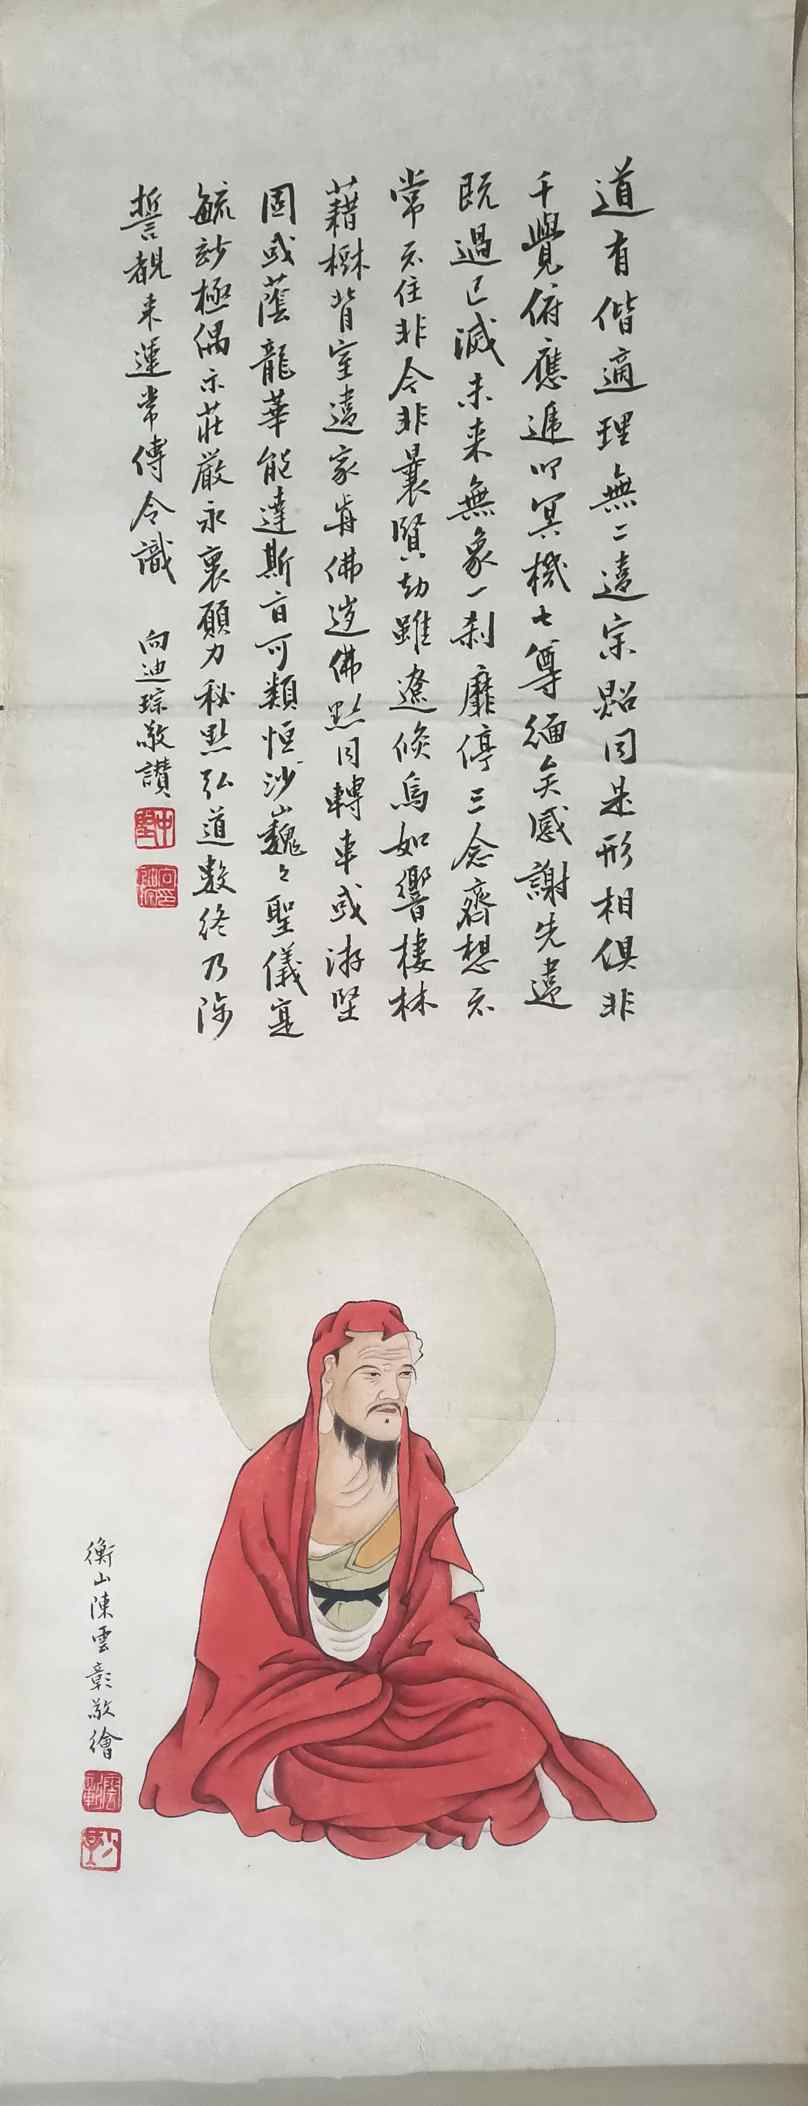 道有偕適理無二遠宗黜同是形相俱非
千覺俯應遞叩冥機七尊緬矣感謝先違
既過已滅未来無象一刹靡停三念齊想不
常不住非今非曩賢劫雖遼倏焉如響棲林
藉樹背室遠家肯佛逆佛點同轉車或游堅
固或蔭龍華能達斯旨可類恒沙巍々聖儀寔
毓玅極偶示莊嚴永裹願力秘點弘道数終乃陟
誓覩来運常傳令識
向迪琮敬讃
衡山陳雲彰敬繪